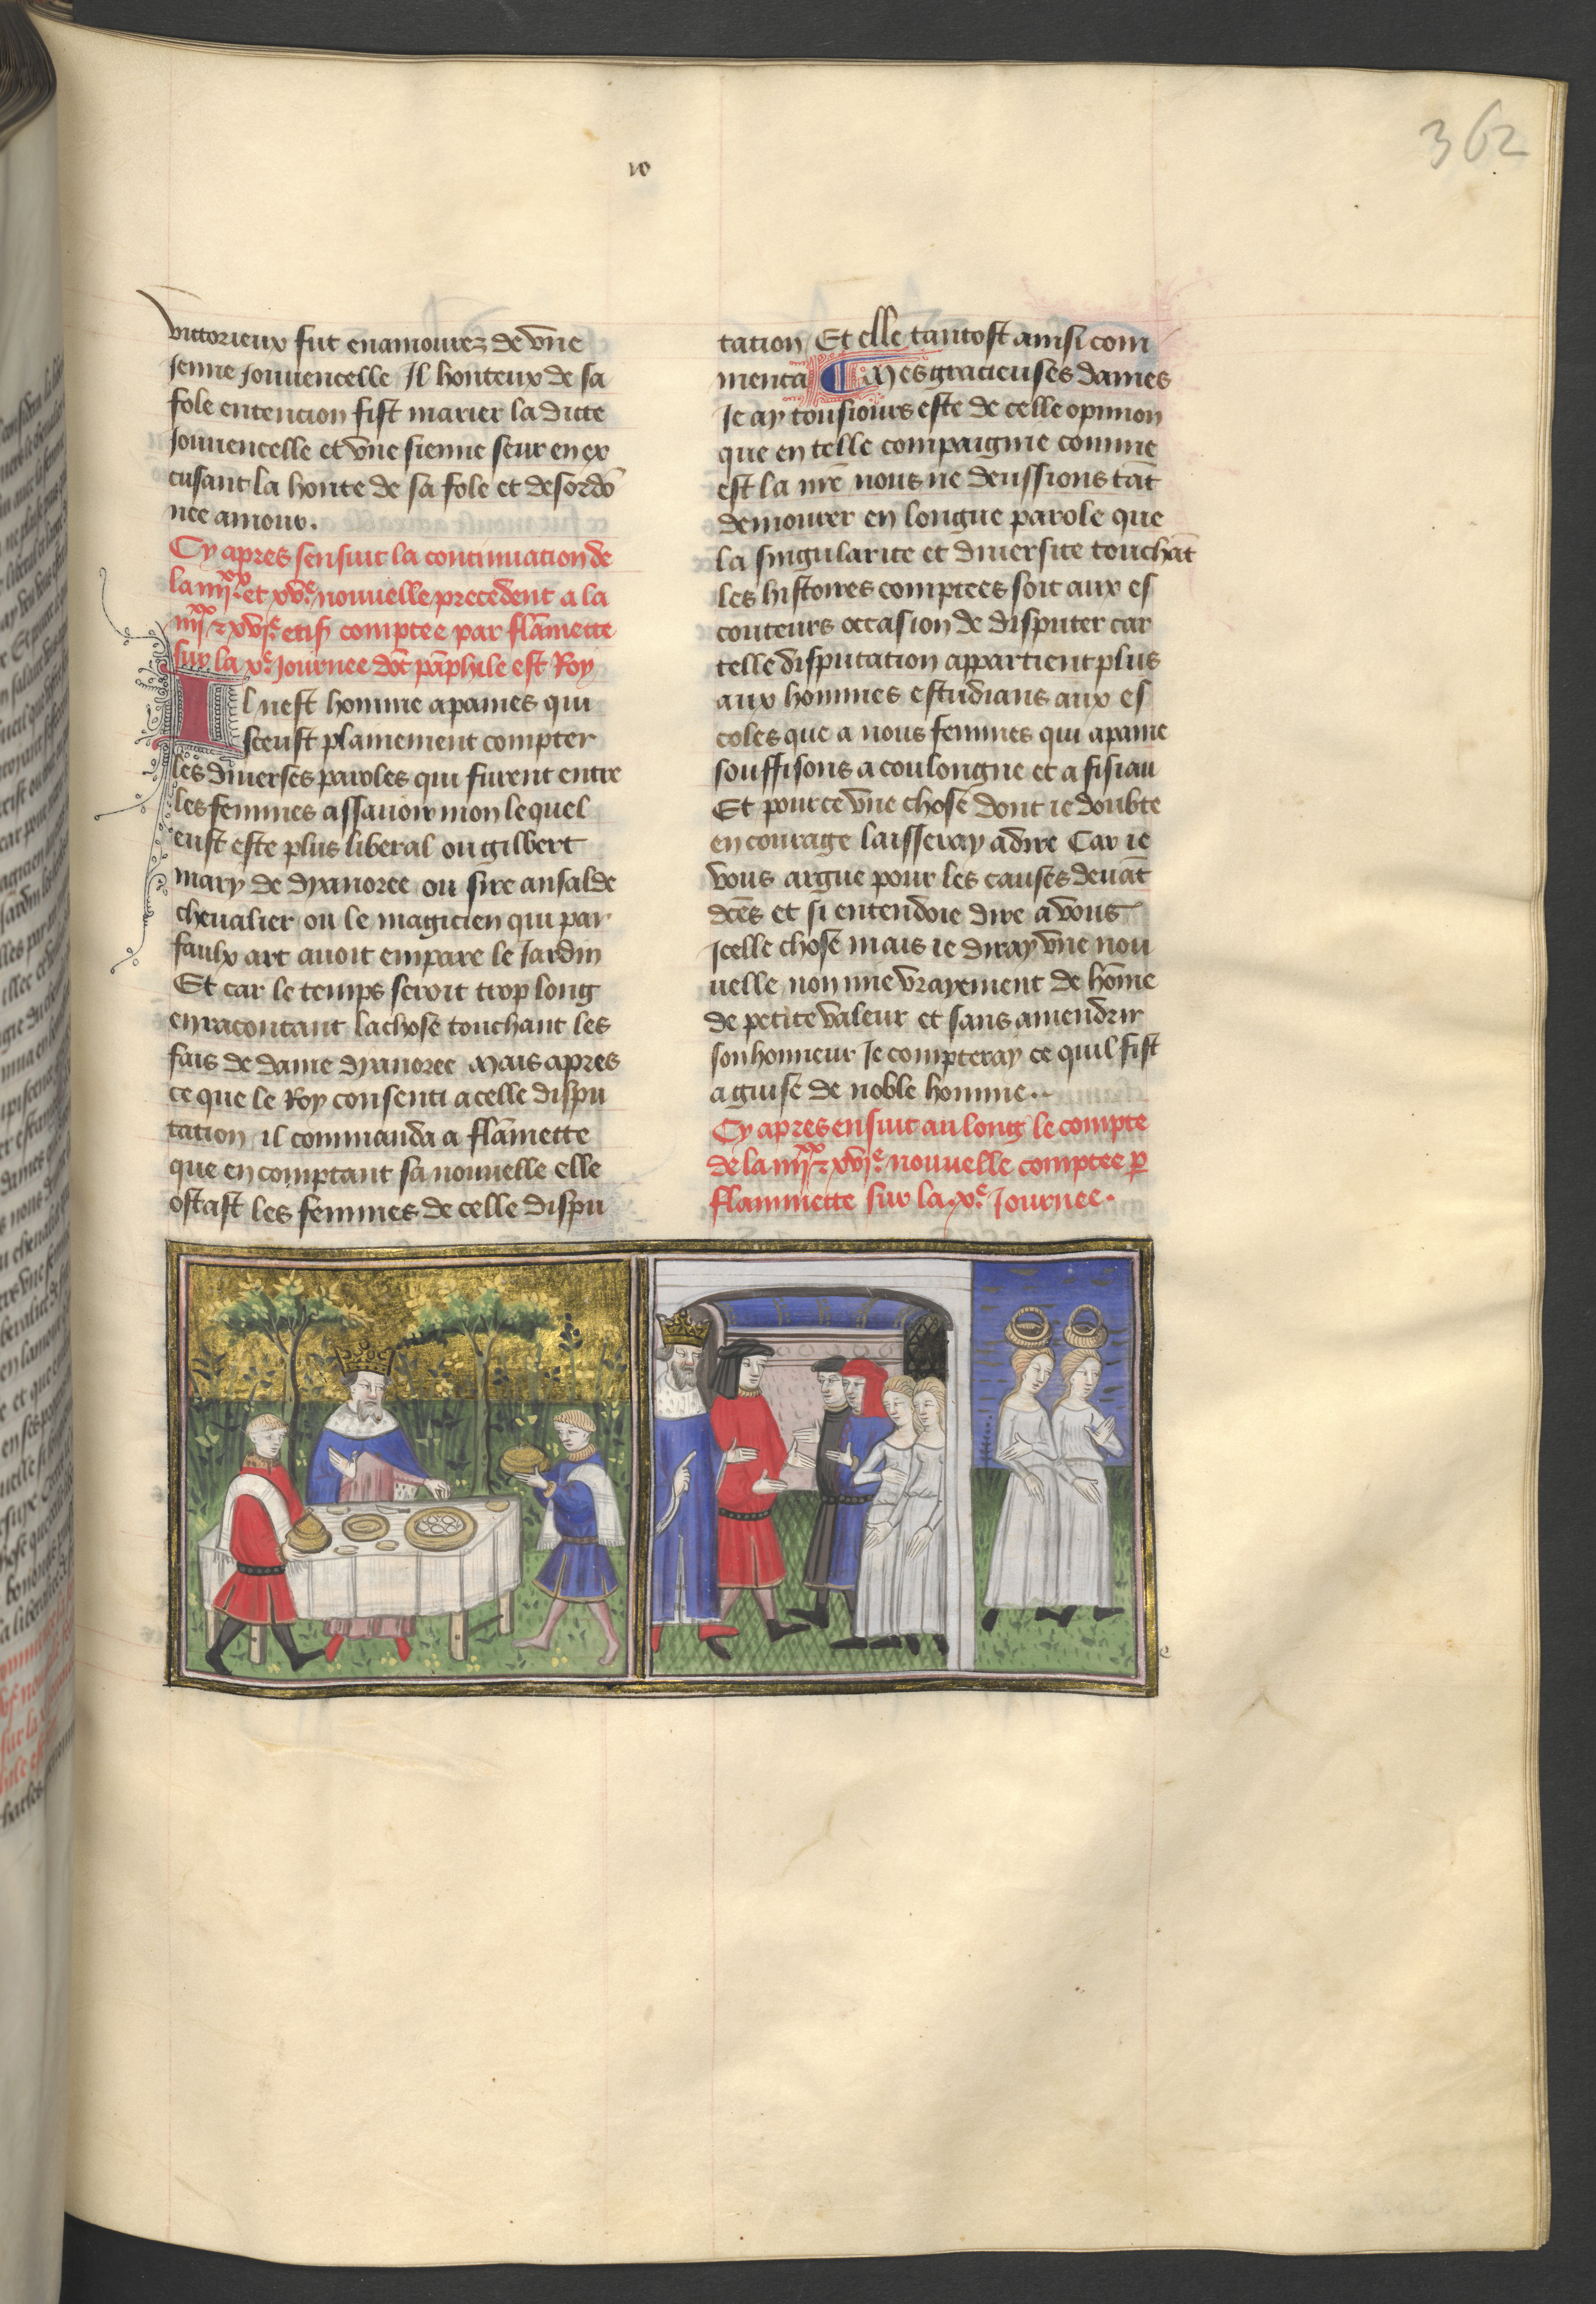 362
10
victorieux fut enamourez de vne
Jenne Jouuencelle Il honteux de sa
fole entencion fist marier la dicte
Jouuencelle et vne sienne seur en ex
cusant la honte de sa fole et desordō
nee amour.
Cy apres sensuit la continuacion de
la iiijxx et xve nouuelle precedent a la
iiijxx et xvje comptee par flāmette
sur la xe Journee dōt pāphile est Roy
Il nest homme a paines qui
sceust plainement compter
les diuerses paroles qui furent entre
les femmes assauoir mon lequel
eust este plus liberal ou gilbert
mary de dyanoree ou sire ansalde
cheualier ou le magicien qui par
faulx art auoit empare le Jardin
Et car le temps seroit trop long
en racontant la chose touchant les
fais de dame dyanoree Mais apres
ce que le Roy consenti a celle dispu
tacion il commanda a flāmette
que en comptant sa nouuelle elle
ostast les femmes de celle dispu
tacion Et elle tantost ainsi com
menca Mes gracieuses dames
Je ay tousiours este de celle opinion
que en telle compaignie comme
est la nr̄e nous ne deussions tāt
demourer en longue parole que
la singularite et diuersite touchāt
les histoires comptees soit aux es
couteurs occasion de disputer car
telle disputacion appartient plus
aux hommes estudians aux es
coles que a nous femmes qui a paine
souffisons a coulongne et a fisiau
Et pour ce vne chose dont ie doubte
en courage laisseray a dire Car ie
vous argue pour les causes deuāt
dc̄es et si entendoie dire a vous
Jcelle chose mais ie diray vne nou
uelle non mie vrayement de hōme
de petite valeur et sans amendrir
son honneur Je compteray ce quil fist
a guise de noble homme..
Cy apres ensuit au long le compte
de la iiijxx et xvje nouuelle comptee p̱
flammette sur la xe Journee.